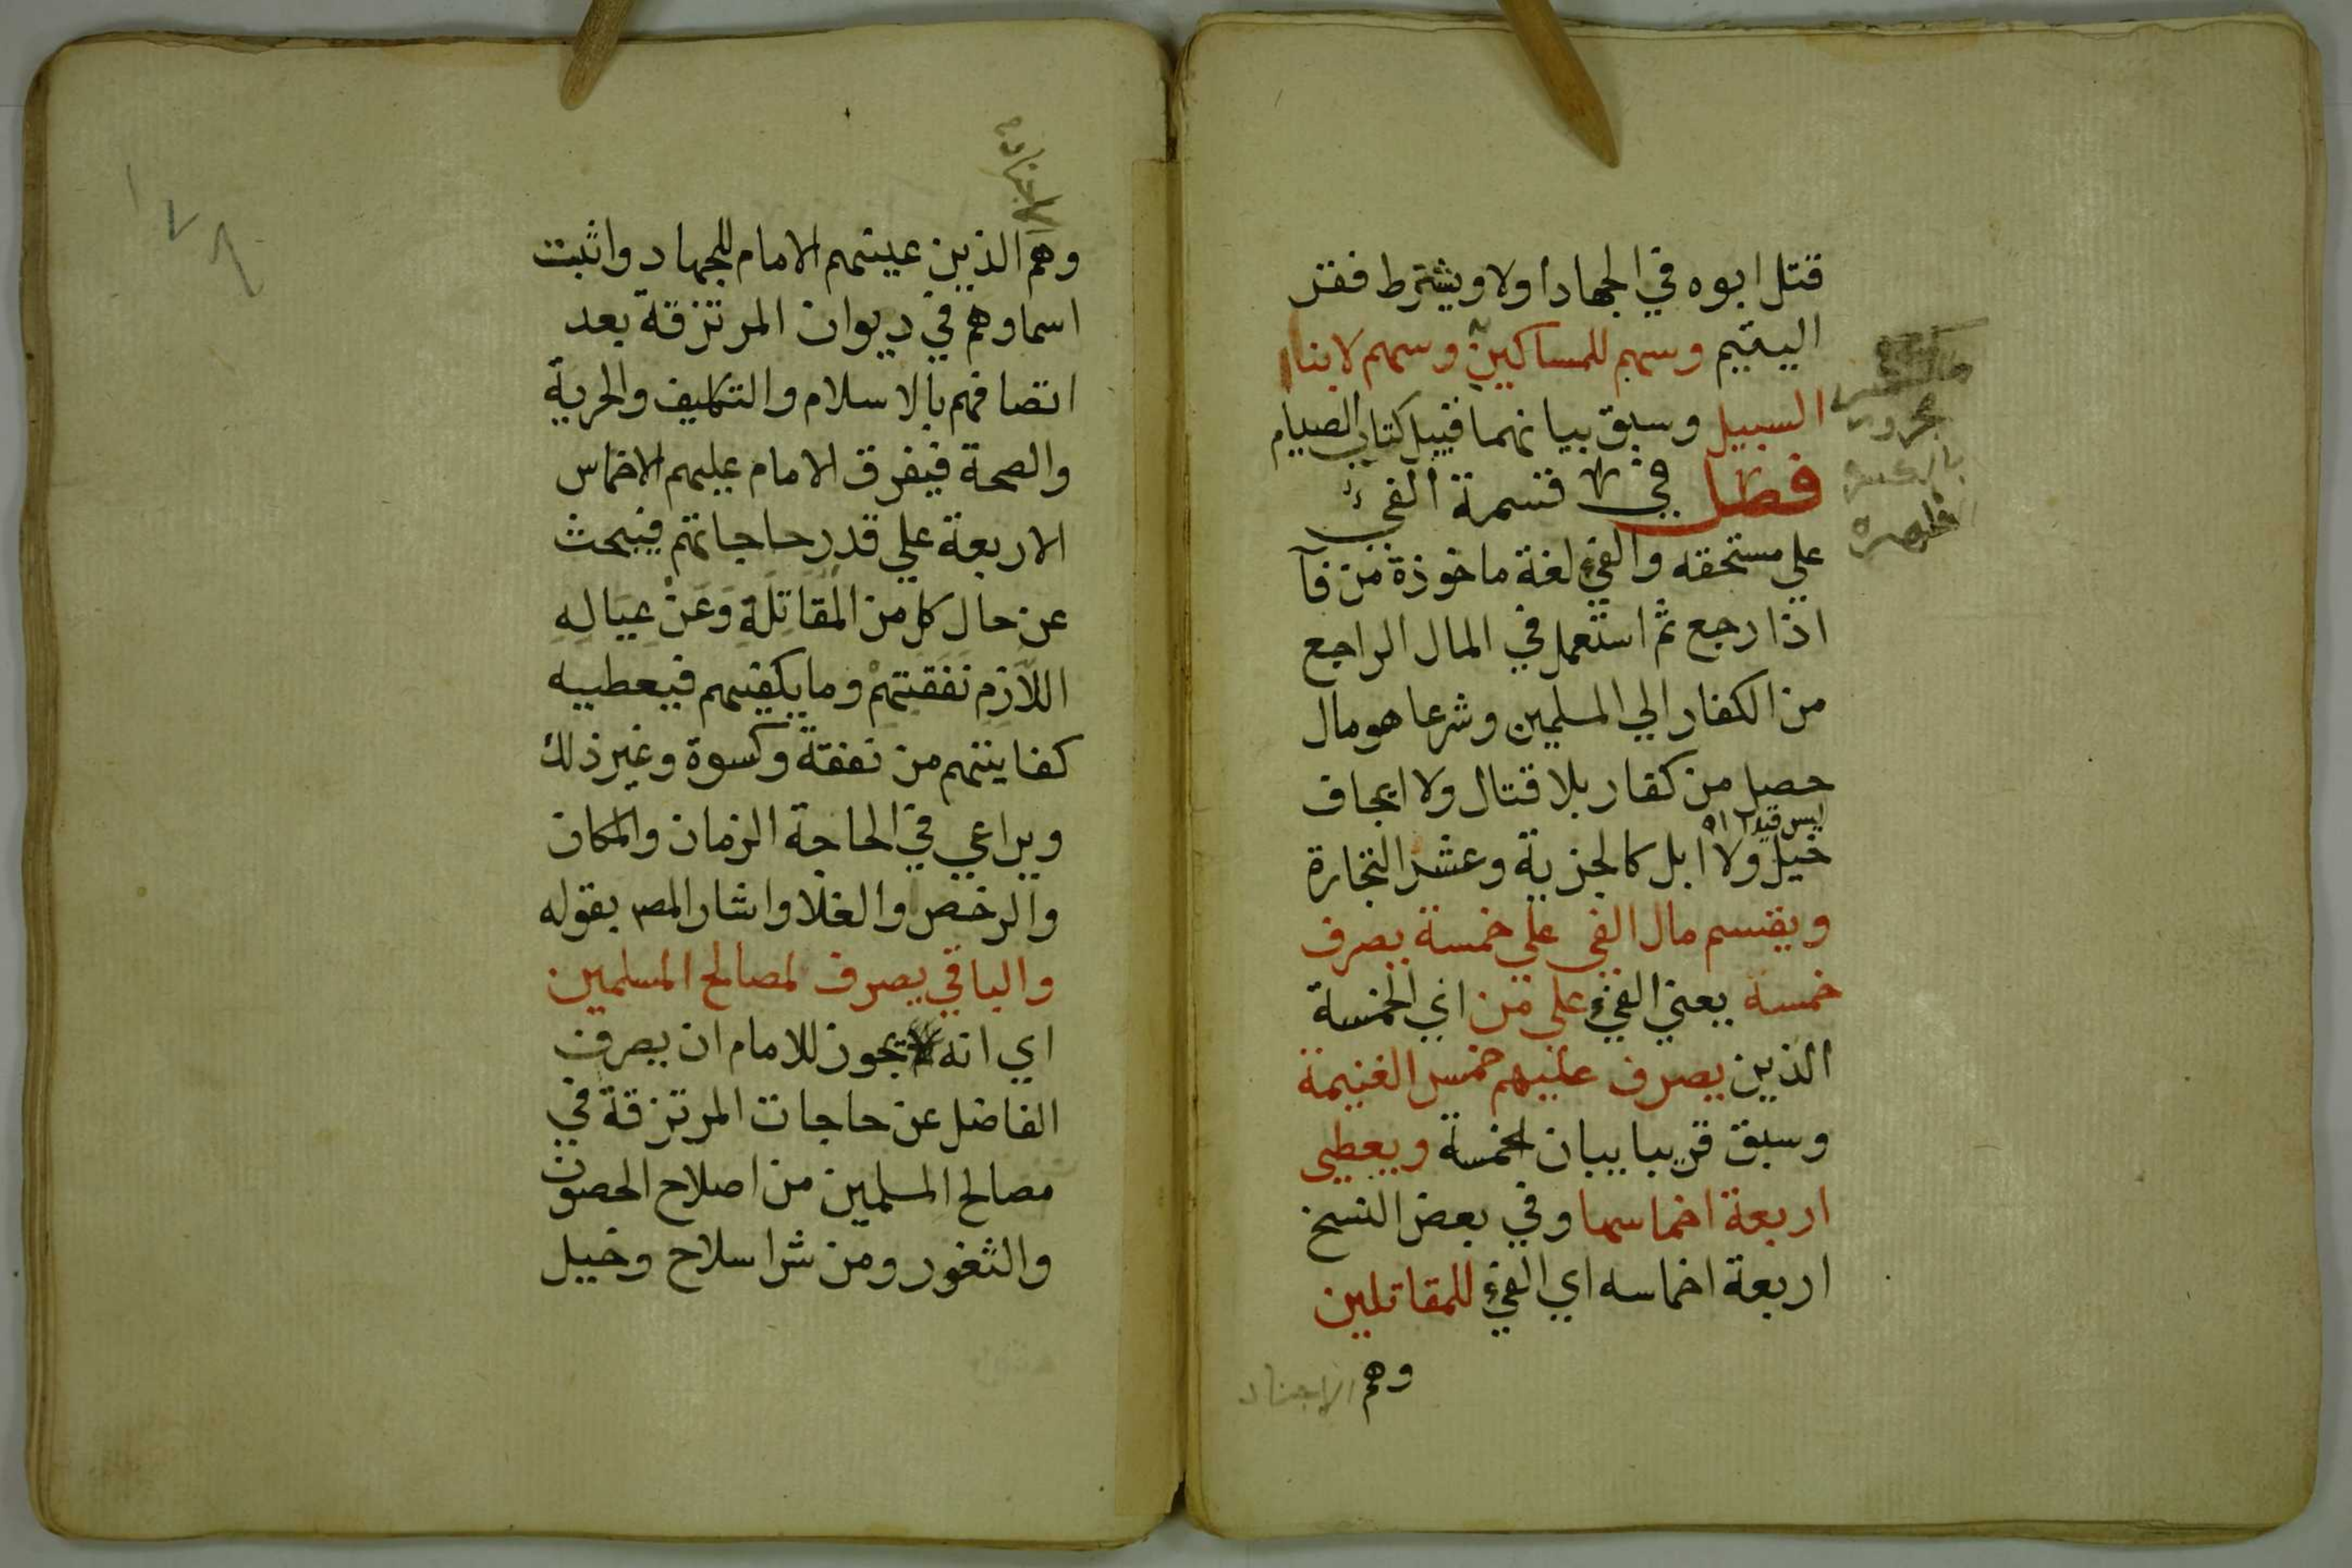 قتل ابوه في الجهاد اولا ويشترط فقر
اليتيم وسهم للمساكين وسهم لابناء
السبيل وسبق بيانهما قبيل كتاب الصيام
فصل في قسمة الفيء
علي مستحقه والفيء لغة ماخوذة من فآ
اذا رجع ثم استعمل في المال الراجع
من الكفار الي المسلمين وشرعا هو مال
حصل من كفار بلا قتال ولا ايجاف
ليس قيدا
خيل ولا ابل كالجزية وعشر التجارة
ويقسم مال الفي علي خمسة يصرف
خمسة يعني الفيء علي من اي الخمسة
الذين يصرف عليهم خمس الغنيمة
وسبق قريبا بيان الخمسة ويعطي
اربعة اخماسها وفي بعض النسخ
اربعة اخماسه اي الفيء للمقاتلين
وهم الاجناد
الاجناد
وهم الذين عينهم الامام للجهاد واثبت
اسماوهم في ديوان المرتزقة بعد
اتصافهم بالاسلام والتكليف والحرية
والصحة فيفرق الامام عليهم الاخماس
الاربعة علي قدر حاجاتهم فيبحث
عن حال كل من المقاتلة وعن عياله
اللازم نفقتهم وما يكفيهم فيعطيه
كفايتهم من نفقة وكسوة وغير ذلك
ويراعي في الحاجة الزمان والمكان
والرخص والغلا واشار المص بقوله
والباقي يصرف لمصالح المسلمين
اي انه يجوز للامام ان يصرف
الفاضل عن حاجات المرتزقة في
مصالح المسلمين من اصلاح الحصون
والثغور ومن شرا سلاح وخيل